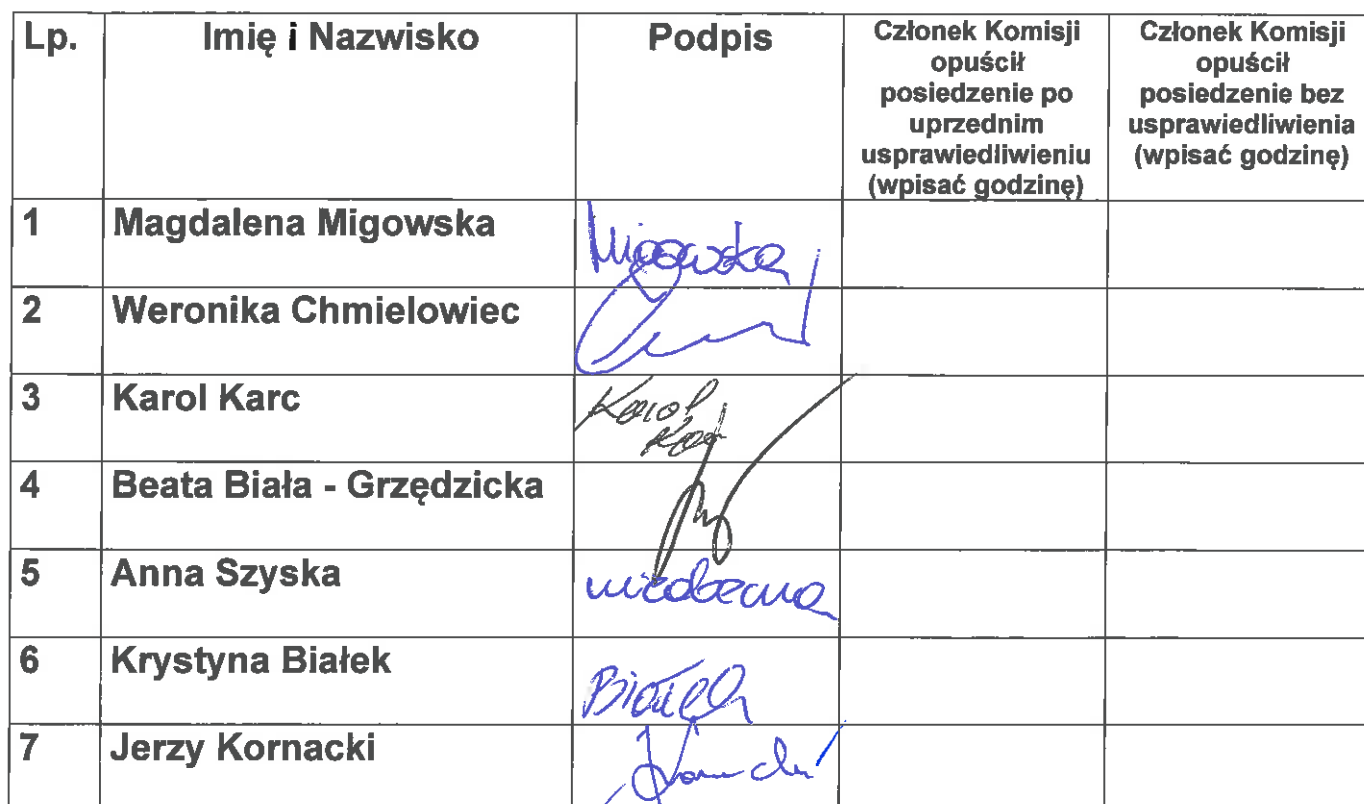 Lp. Imię i Nazwisko Podpis Członek Komisji opuścił posiedzenie po uprzednim usprawiedliwieniu (wpisać godzinę) Członek Komisji opuścił posiedzenie bez usprawiedliwienia (wpisać godzinę)
1 Magdalena Migowska Migowska
2 Weronika Chmielowiec
3 Karol Karc Karol Karc
4 Beata Biała - Grzędzicka
5 Anna Szyska nieobecna
6 Krystyna Białek Białek
7 Jerzy Kornacki